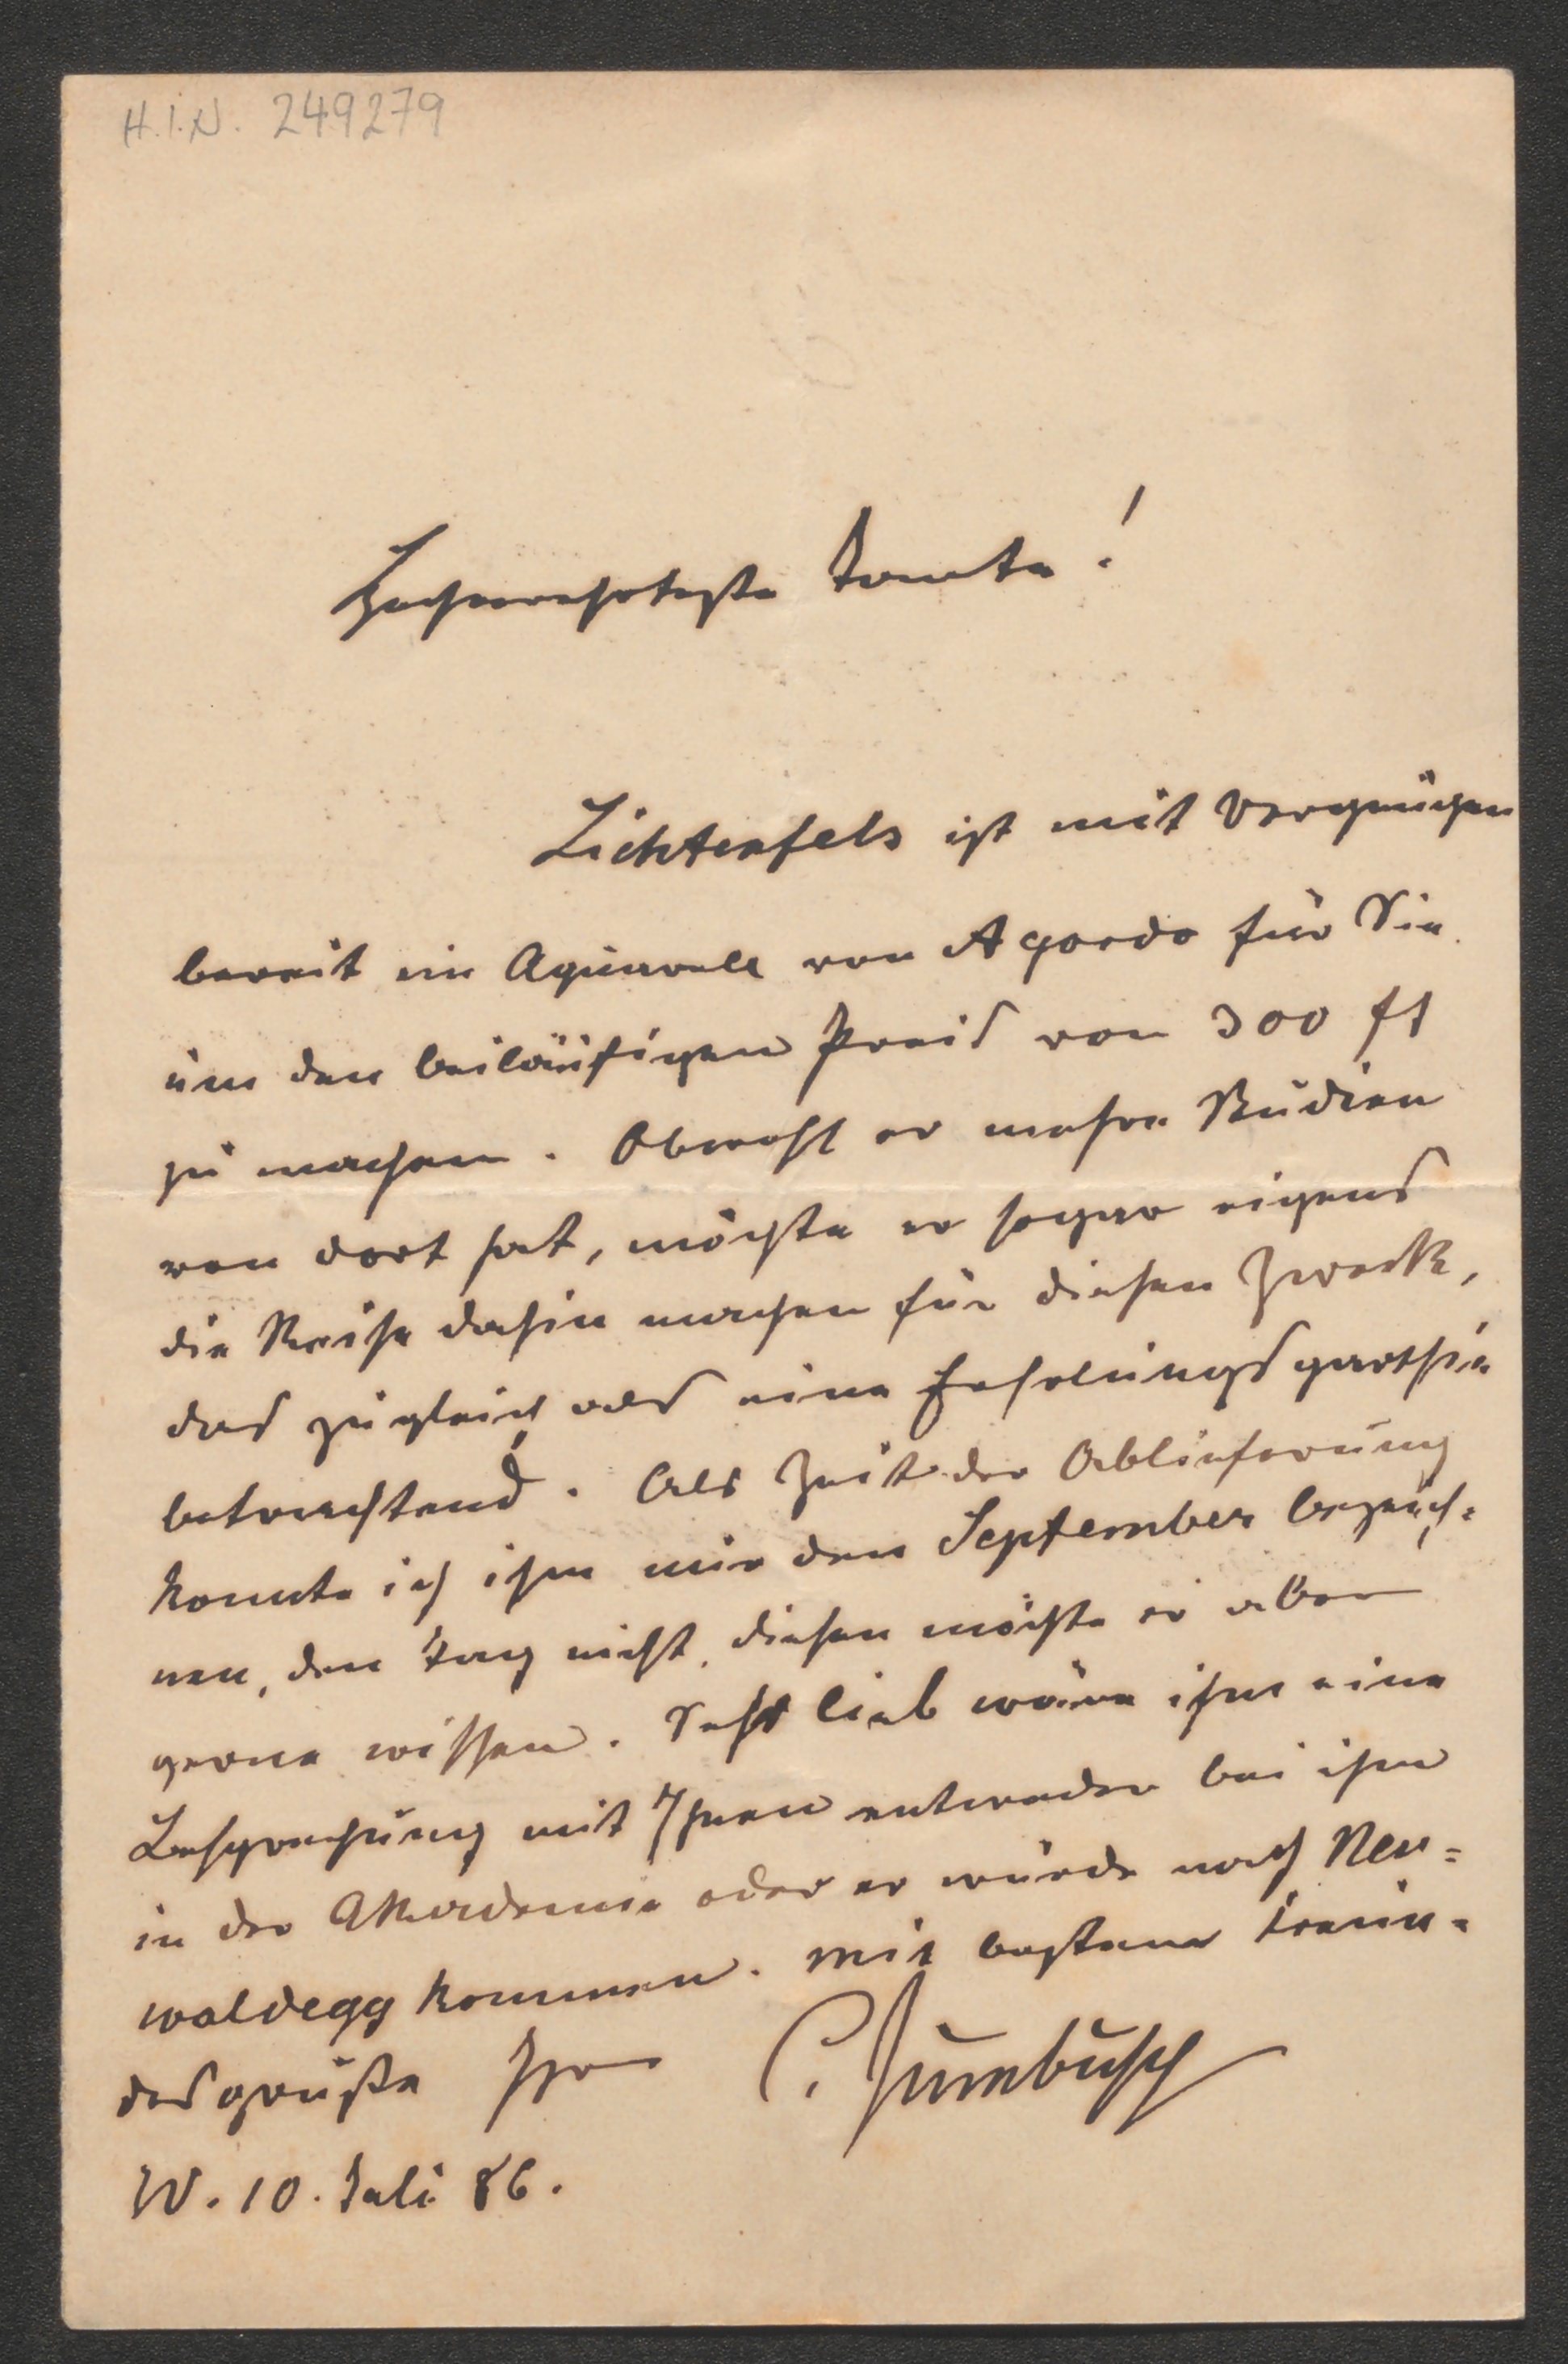 H.I.N. 249279
Hochverehrteste Tante!
Lichtenfels ist mit Vergnügen
bereit ein Aquarell von Agordo für Sie
um den beiläufigen Preis von 300 fl
zu machen. Obwohl er mehre Studien
von dort hat, möchte er sogar eigens
die Reise dahin machen für diesen Zweck,
das zugleich als eine Erholungsparthie
betrachtend. Als Zeit der Ablieferung
konnte ich ihm nur den September bezeich=
nen, den Tag nicht, diesen möchte er aber
gerne wissen. Sehr lieb wäre ihm eine
Besprechung mit Ihnen entweder bei ihm
in der Akademie oder er würde nach Neu=
waldegg kommen. Mit bestem Freun=
desgruße Ihr C. Zumbusch
W. 10. Juli 86.